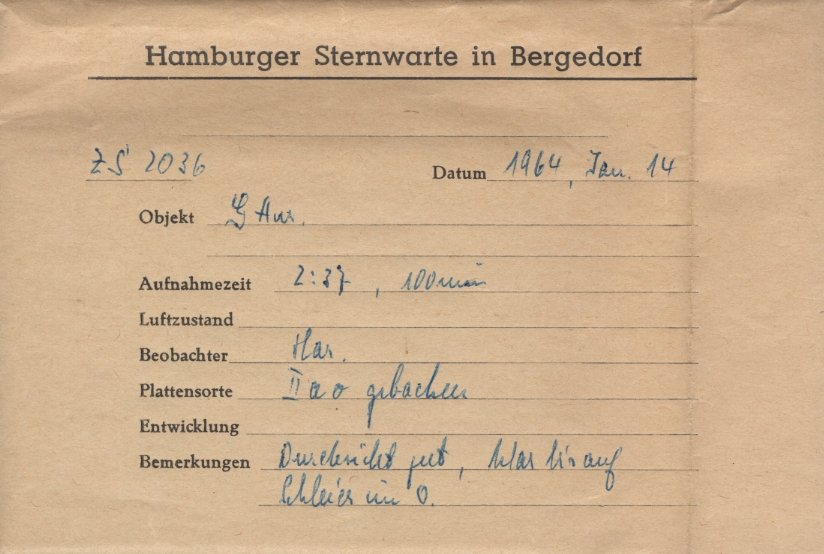 Hamburger Sternwarte in Bergedorf
ZS 2036 Datum 1964, Jan. 14
Objekt Aur.
Aufnahmezeit 2:37, 100 min
Luftzustand
Beobachter Har.
Plattensorte IIa o gebacken
Entwicklung
Bemerkungen Durchsicht gut, klar bis auf
Schleier im O.